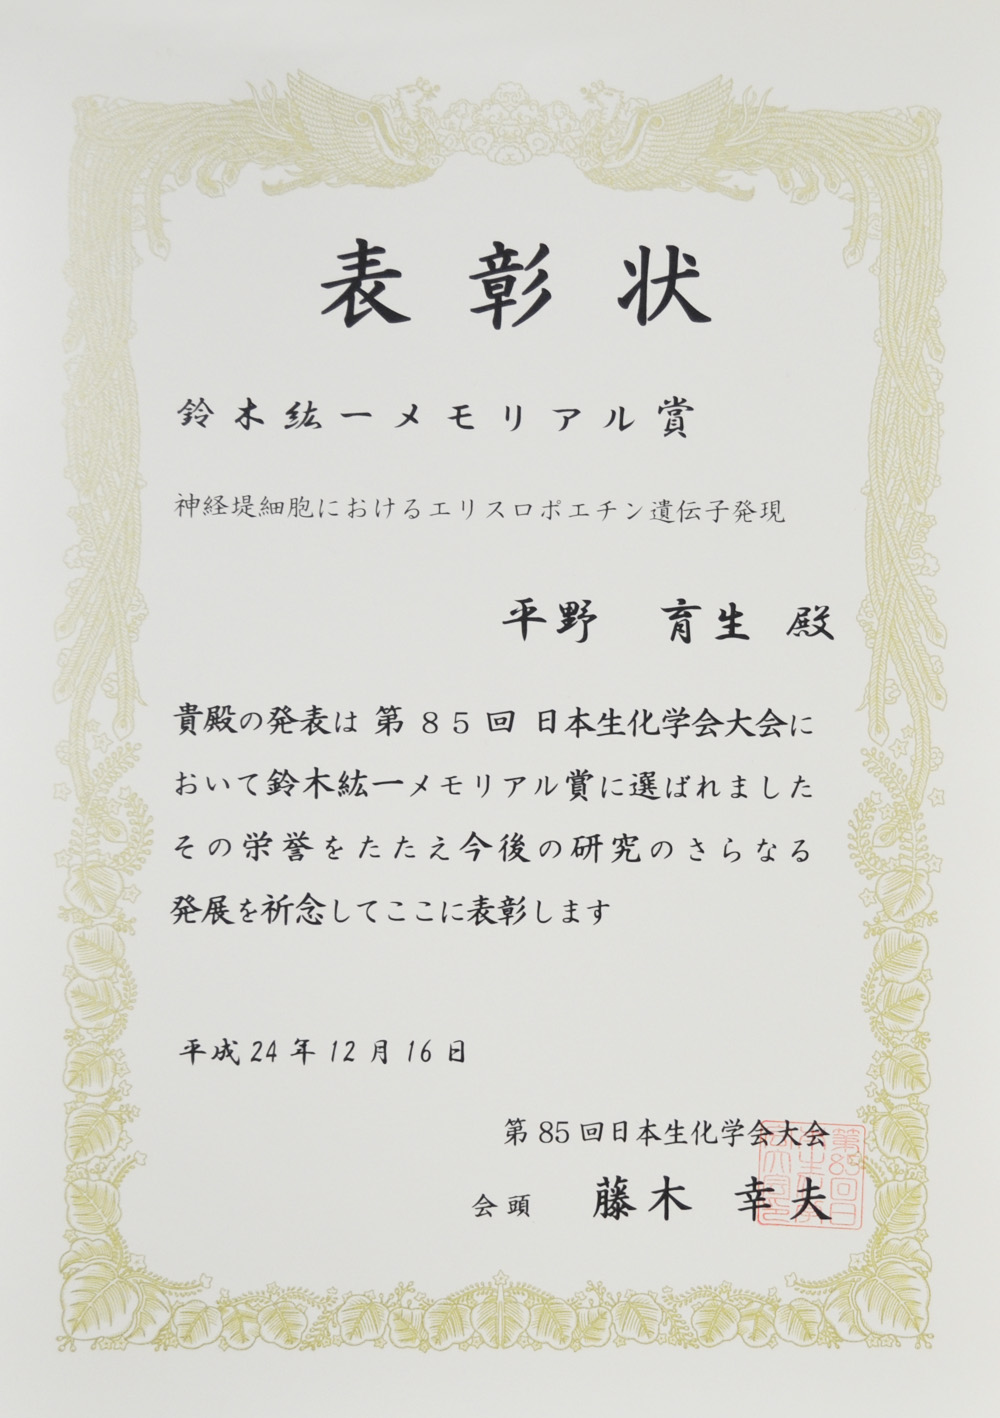 表彰状
鈴木紘一メモリアル賞
神経堤細胞におけるエリスロポエチン遺伝子発現
平野 育生 殿
貴殿の発表は 第85回 日本生化学会大会に
おいて鈴木紘一メモリアル賞に選ばれました
その栄誉をたたえ今後の研究のさらなる
発展を祈念してここに表彰します
平成24年12月16日
第85回日本生化学会大会
会頭 藤木 幸夫